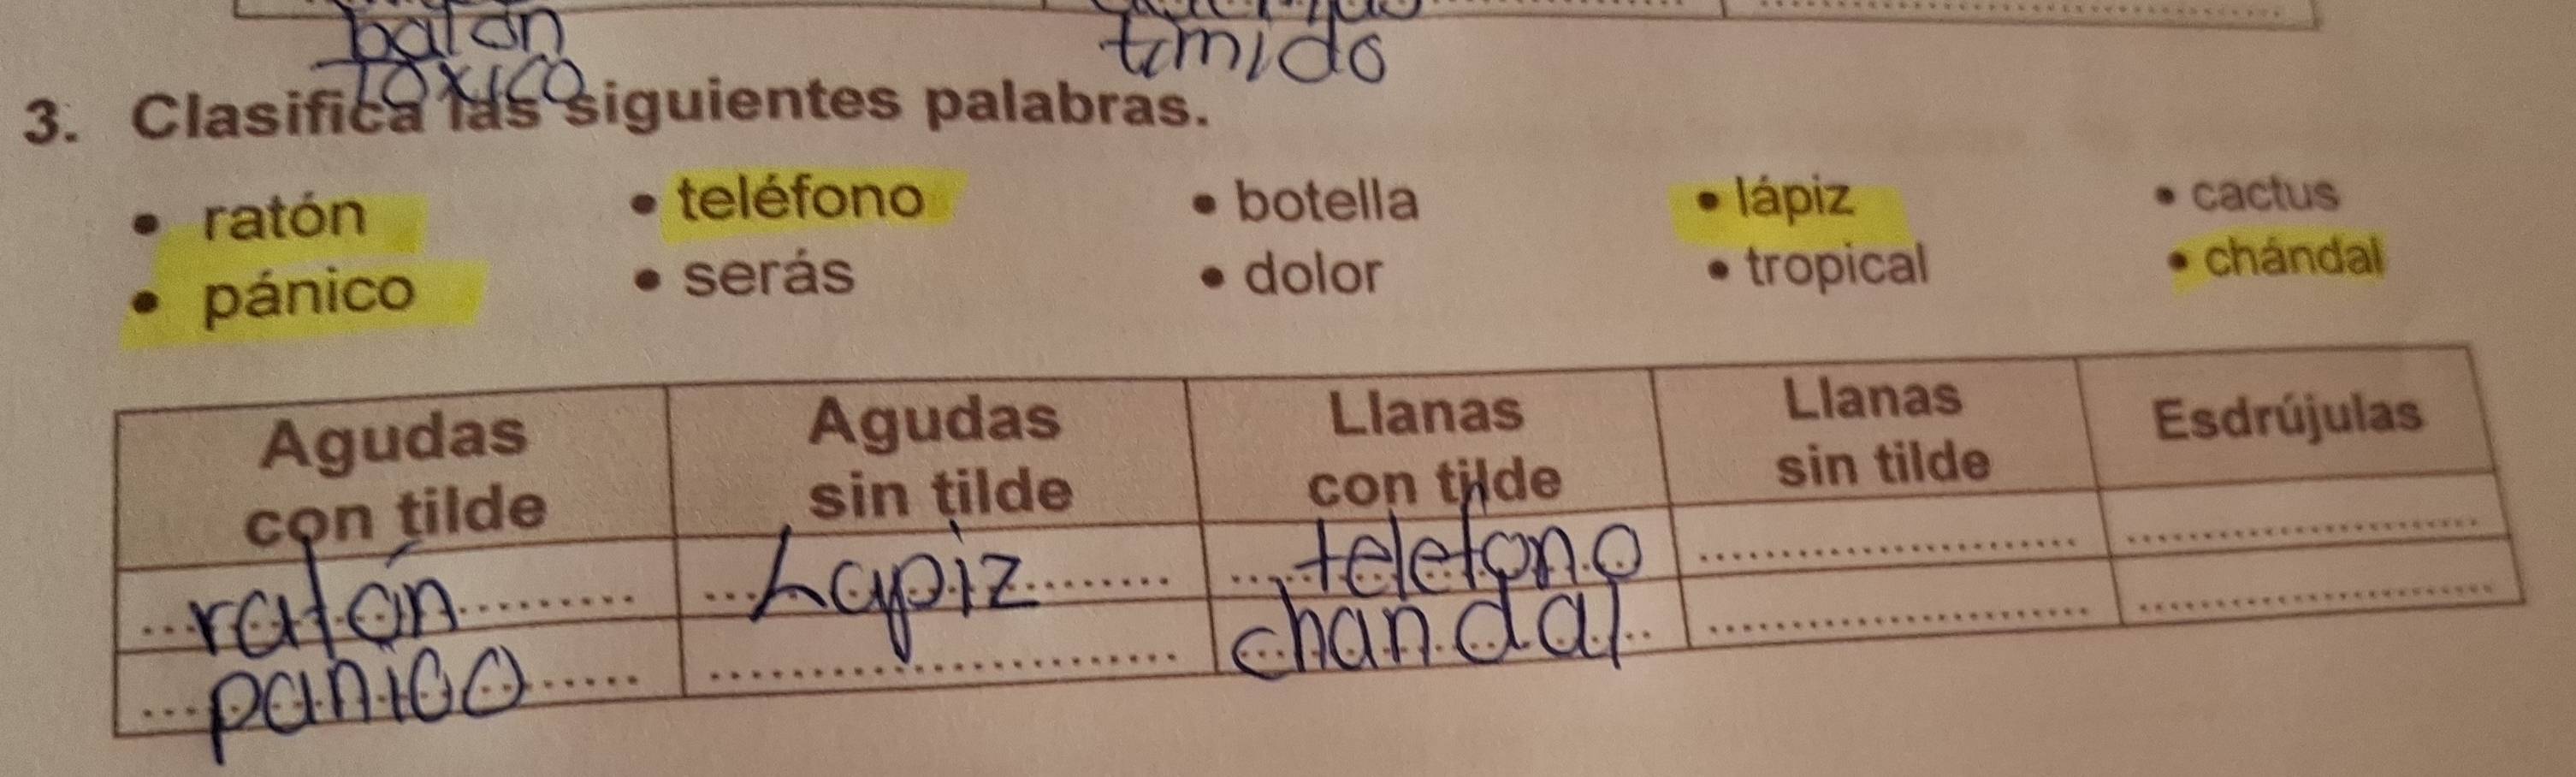 balón
tóxico
timido
3. Clasifica las siguientes palabras.
• ratón • teléfono • botella • lápiz • cactus
• pánico • serás • dolor • tropical • chándal
Agudas con tilde
Agudas sin tilde
Llanas con tilde
Llanas sin tilde
Esdrújulas
ratón
Lapiz
telefono
panico
chandal